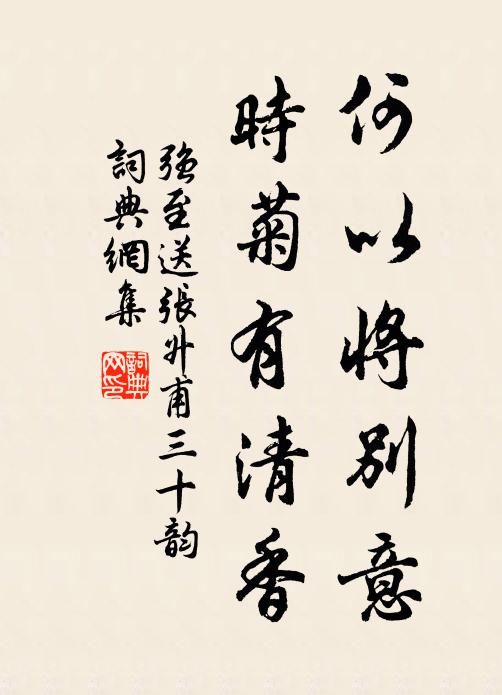 何以将别意
時菊有清香
強至送張升甫三十韵
詞典網集
詞典
网印